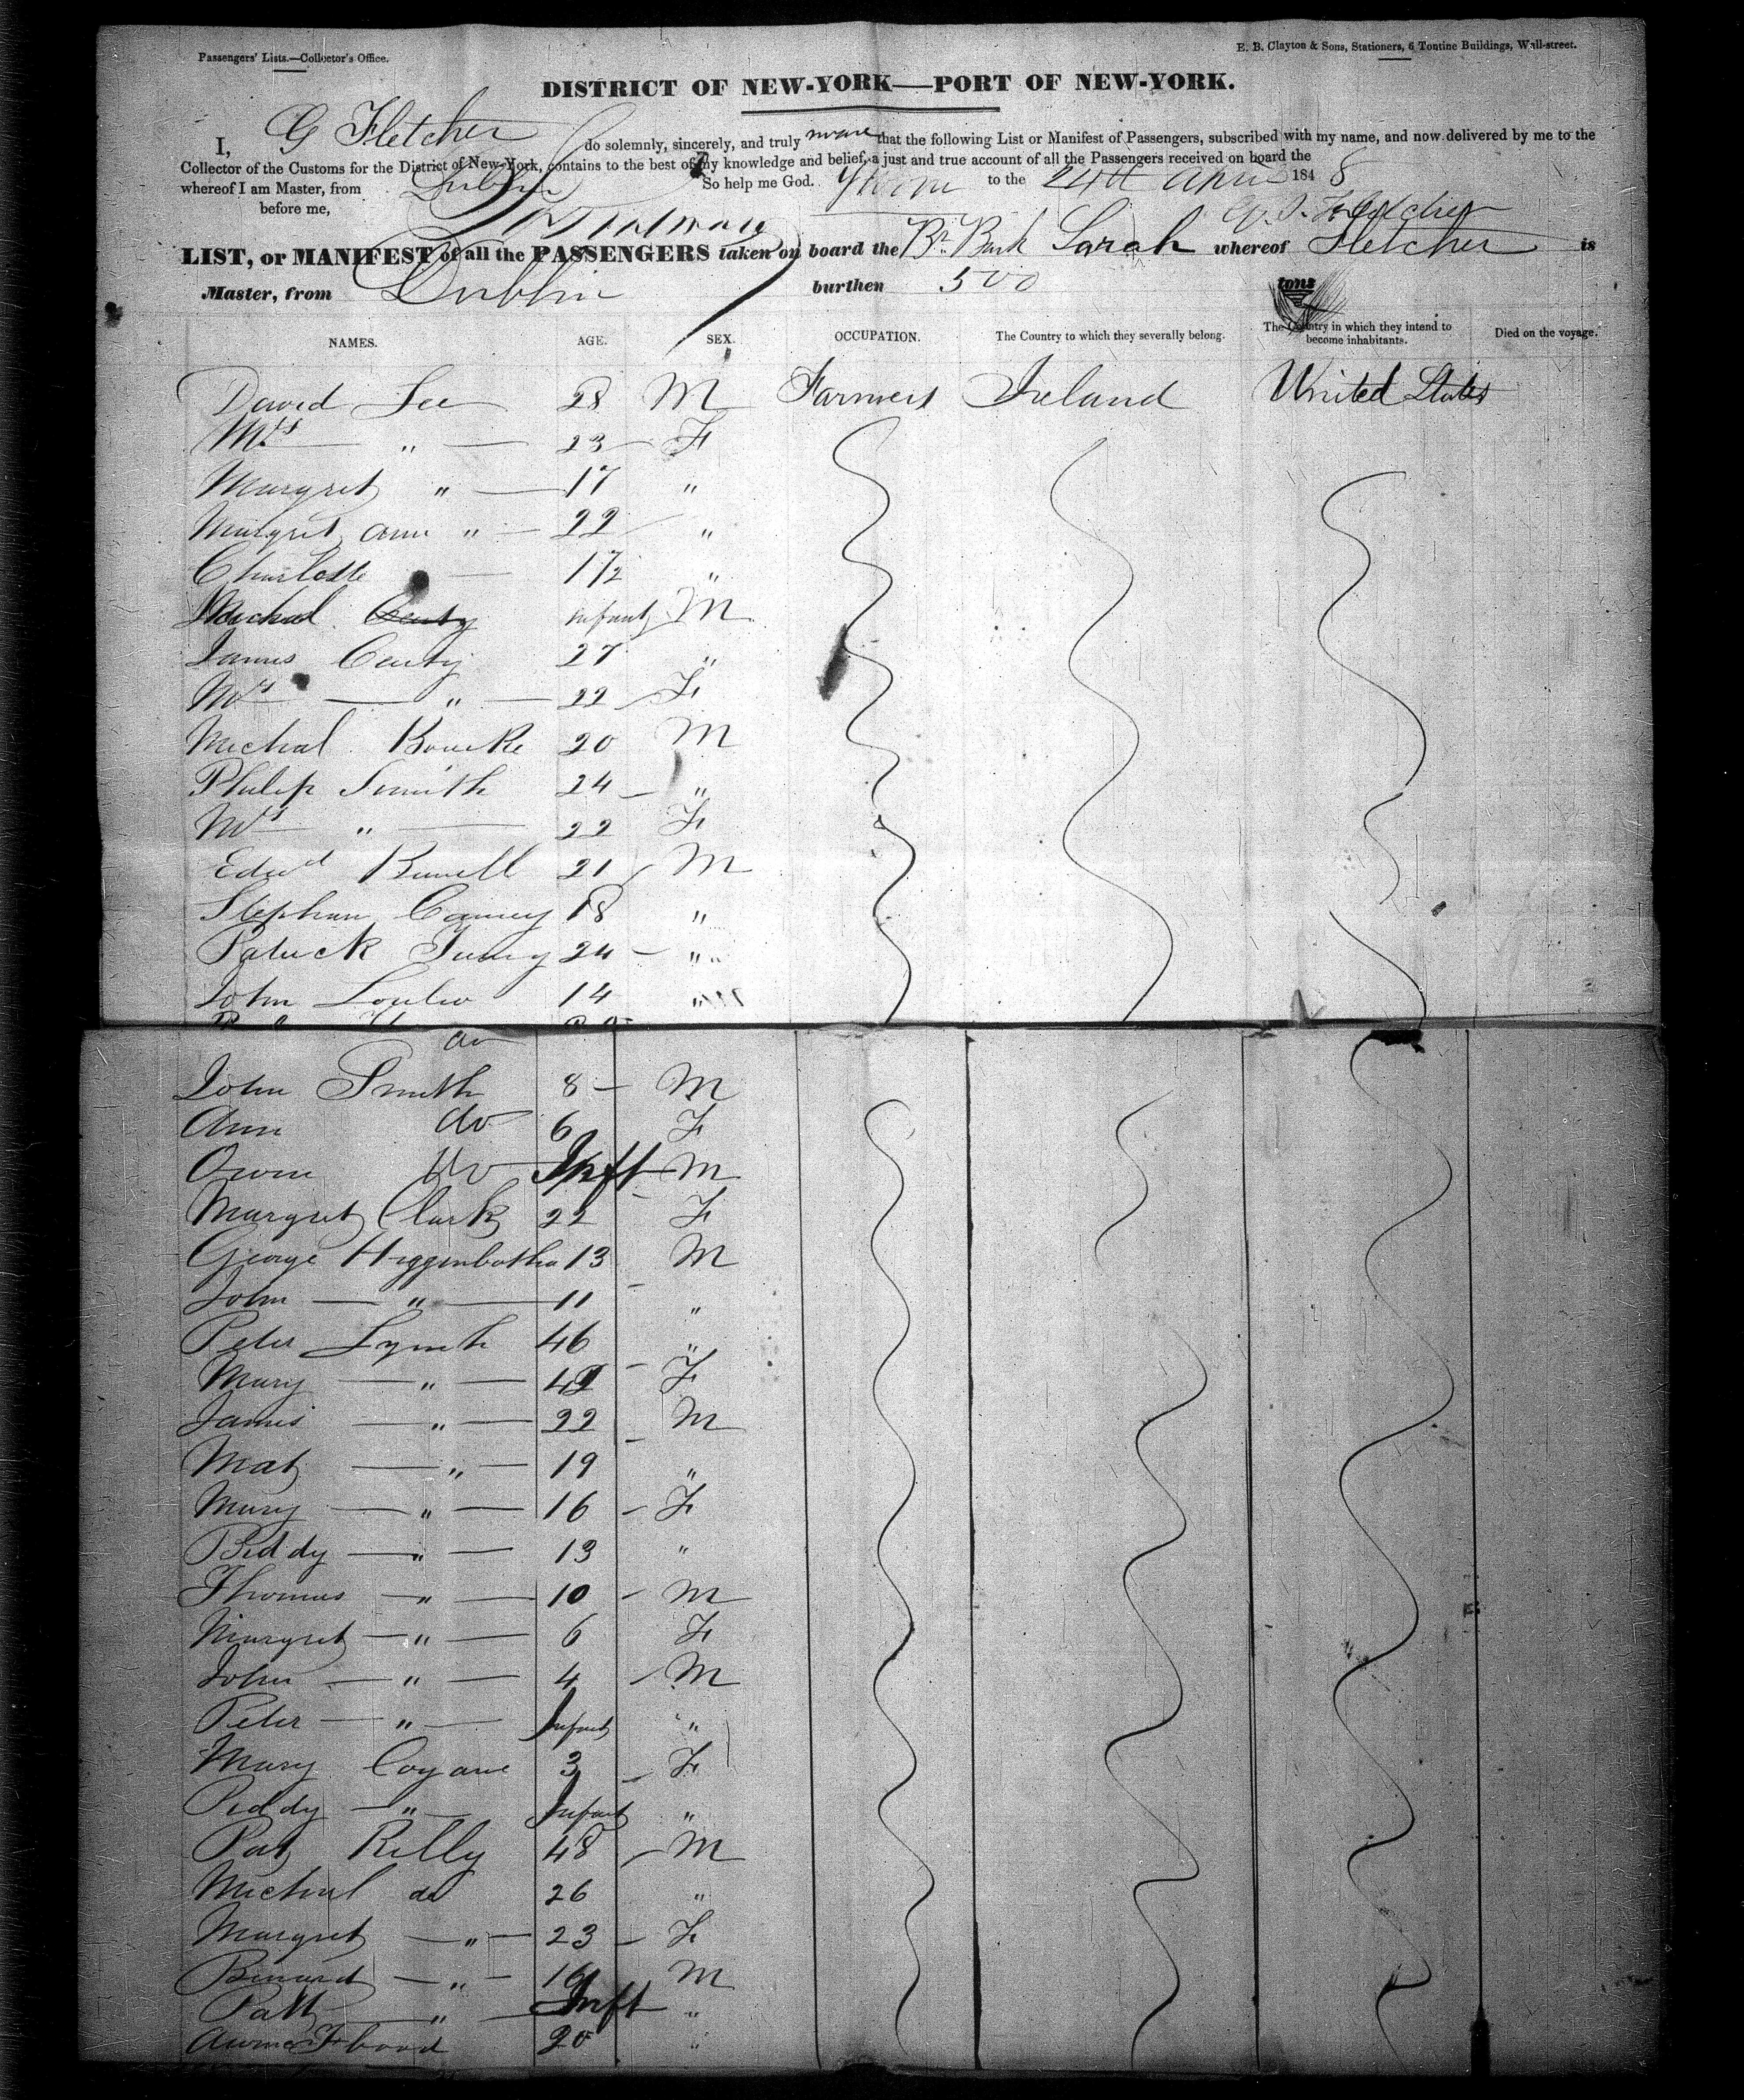 Passengers' Lists.—Collector's Office.
E. B. Clayton & Sons, Stationers, 6 Tontine Buildings, Wall-street.
DISTRICT OF NEW-YORK—PORT OF NEW-YORK.
I, G Fletcher do solemnly, sincerely, and truly swear that the following List or Manifest of Passengers, subscribed with my name, and now delivered by me to the
Collector of the Customs for the District of New-York, contains to the best of my knowledge and belief, a just and true account of all the Passengers received on board the
whereof I am Master, from Dublin So help me God. to the 24th April 1848
before me, Fletcher
LIST, or MANIFEST of all the PASSENGERS taken on board the Br Bark Sarah whereof Fletcher is
Master, from Dublin burthen 500 tons
NAMES. AGE. SEX. OCCUPATION. The Country to which they severally belong. The Country in which they intend to become inhabitants. Died on the voyage.
David Lee 28 M Farmers Ireland United States
Mrs " 23 F
Margret " 17 "
Margret Ann " 22 "
Charlotte 1/2 "
Michal Infant M
James 27 "
Mrs " 22 F
Michal Bourke 20 M
Philip Smith 24 "
Mrs " 22 F
Edwd 21 M
Stephen 18 "
Patrick 24 "
John 14 "
do
John Smith 8 M
Ann do 6 F
Owen do Inft M
Margret Clark 22 F
George Higgenbotha 13 M
John " 11 "
Peter Lynch 46 "
Mary " 42 F
James " 22 M
Mat " 19 "
Mary " 16 F
Biddy " 13 "
Thomas " 10 M
Margret " 6 F
John " 4 M
Peter " Infant "
Mary 3 F
Biddy " Infant "
Pat Rilly 48 M
Michael do 26 "
Margret " 23 F
Benard " 16 M
Patt " Inft "
Flood 20 "